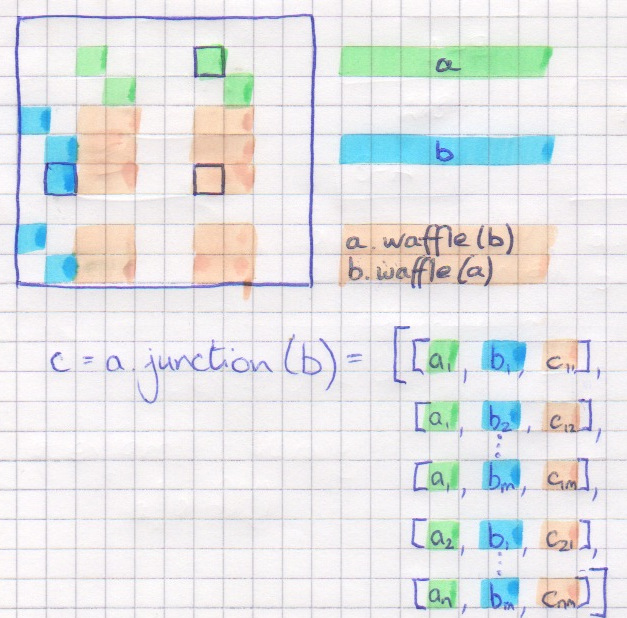 a
b
a.waffle(b)
b.waffle(a)
c = a.junction(b) = [[a₁, b₁, c₁₁],
[a₁, b₂, c₁₂],
[a₁, bₘ, c₁ₘ],
[a₂, b₁, c₂₁],
[aₙ, bₘ, cₙₘ]]